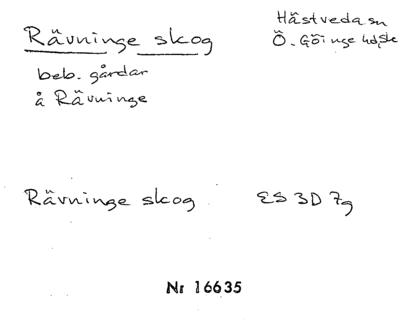 Rävninge skog
Hästveda sn
Ö. Göinge hd, Sk
beb. gårdar
å Rävninge
Rävninge skog ES 3D 7g
Nr 16635